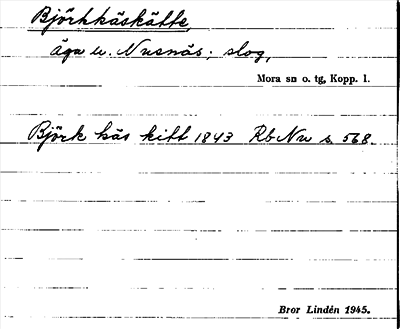 Björkkäskätte,
äga u. Nusnäs; slog,
Mora sn o. tg, Kopp. l.
Björk käs kitt 1843 Rb Nu s. 568.
Bror Lindén 1945.